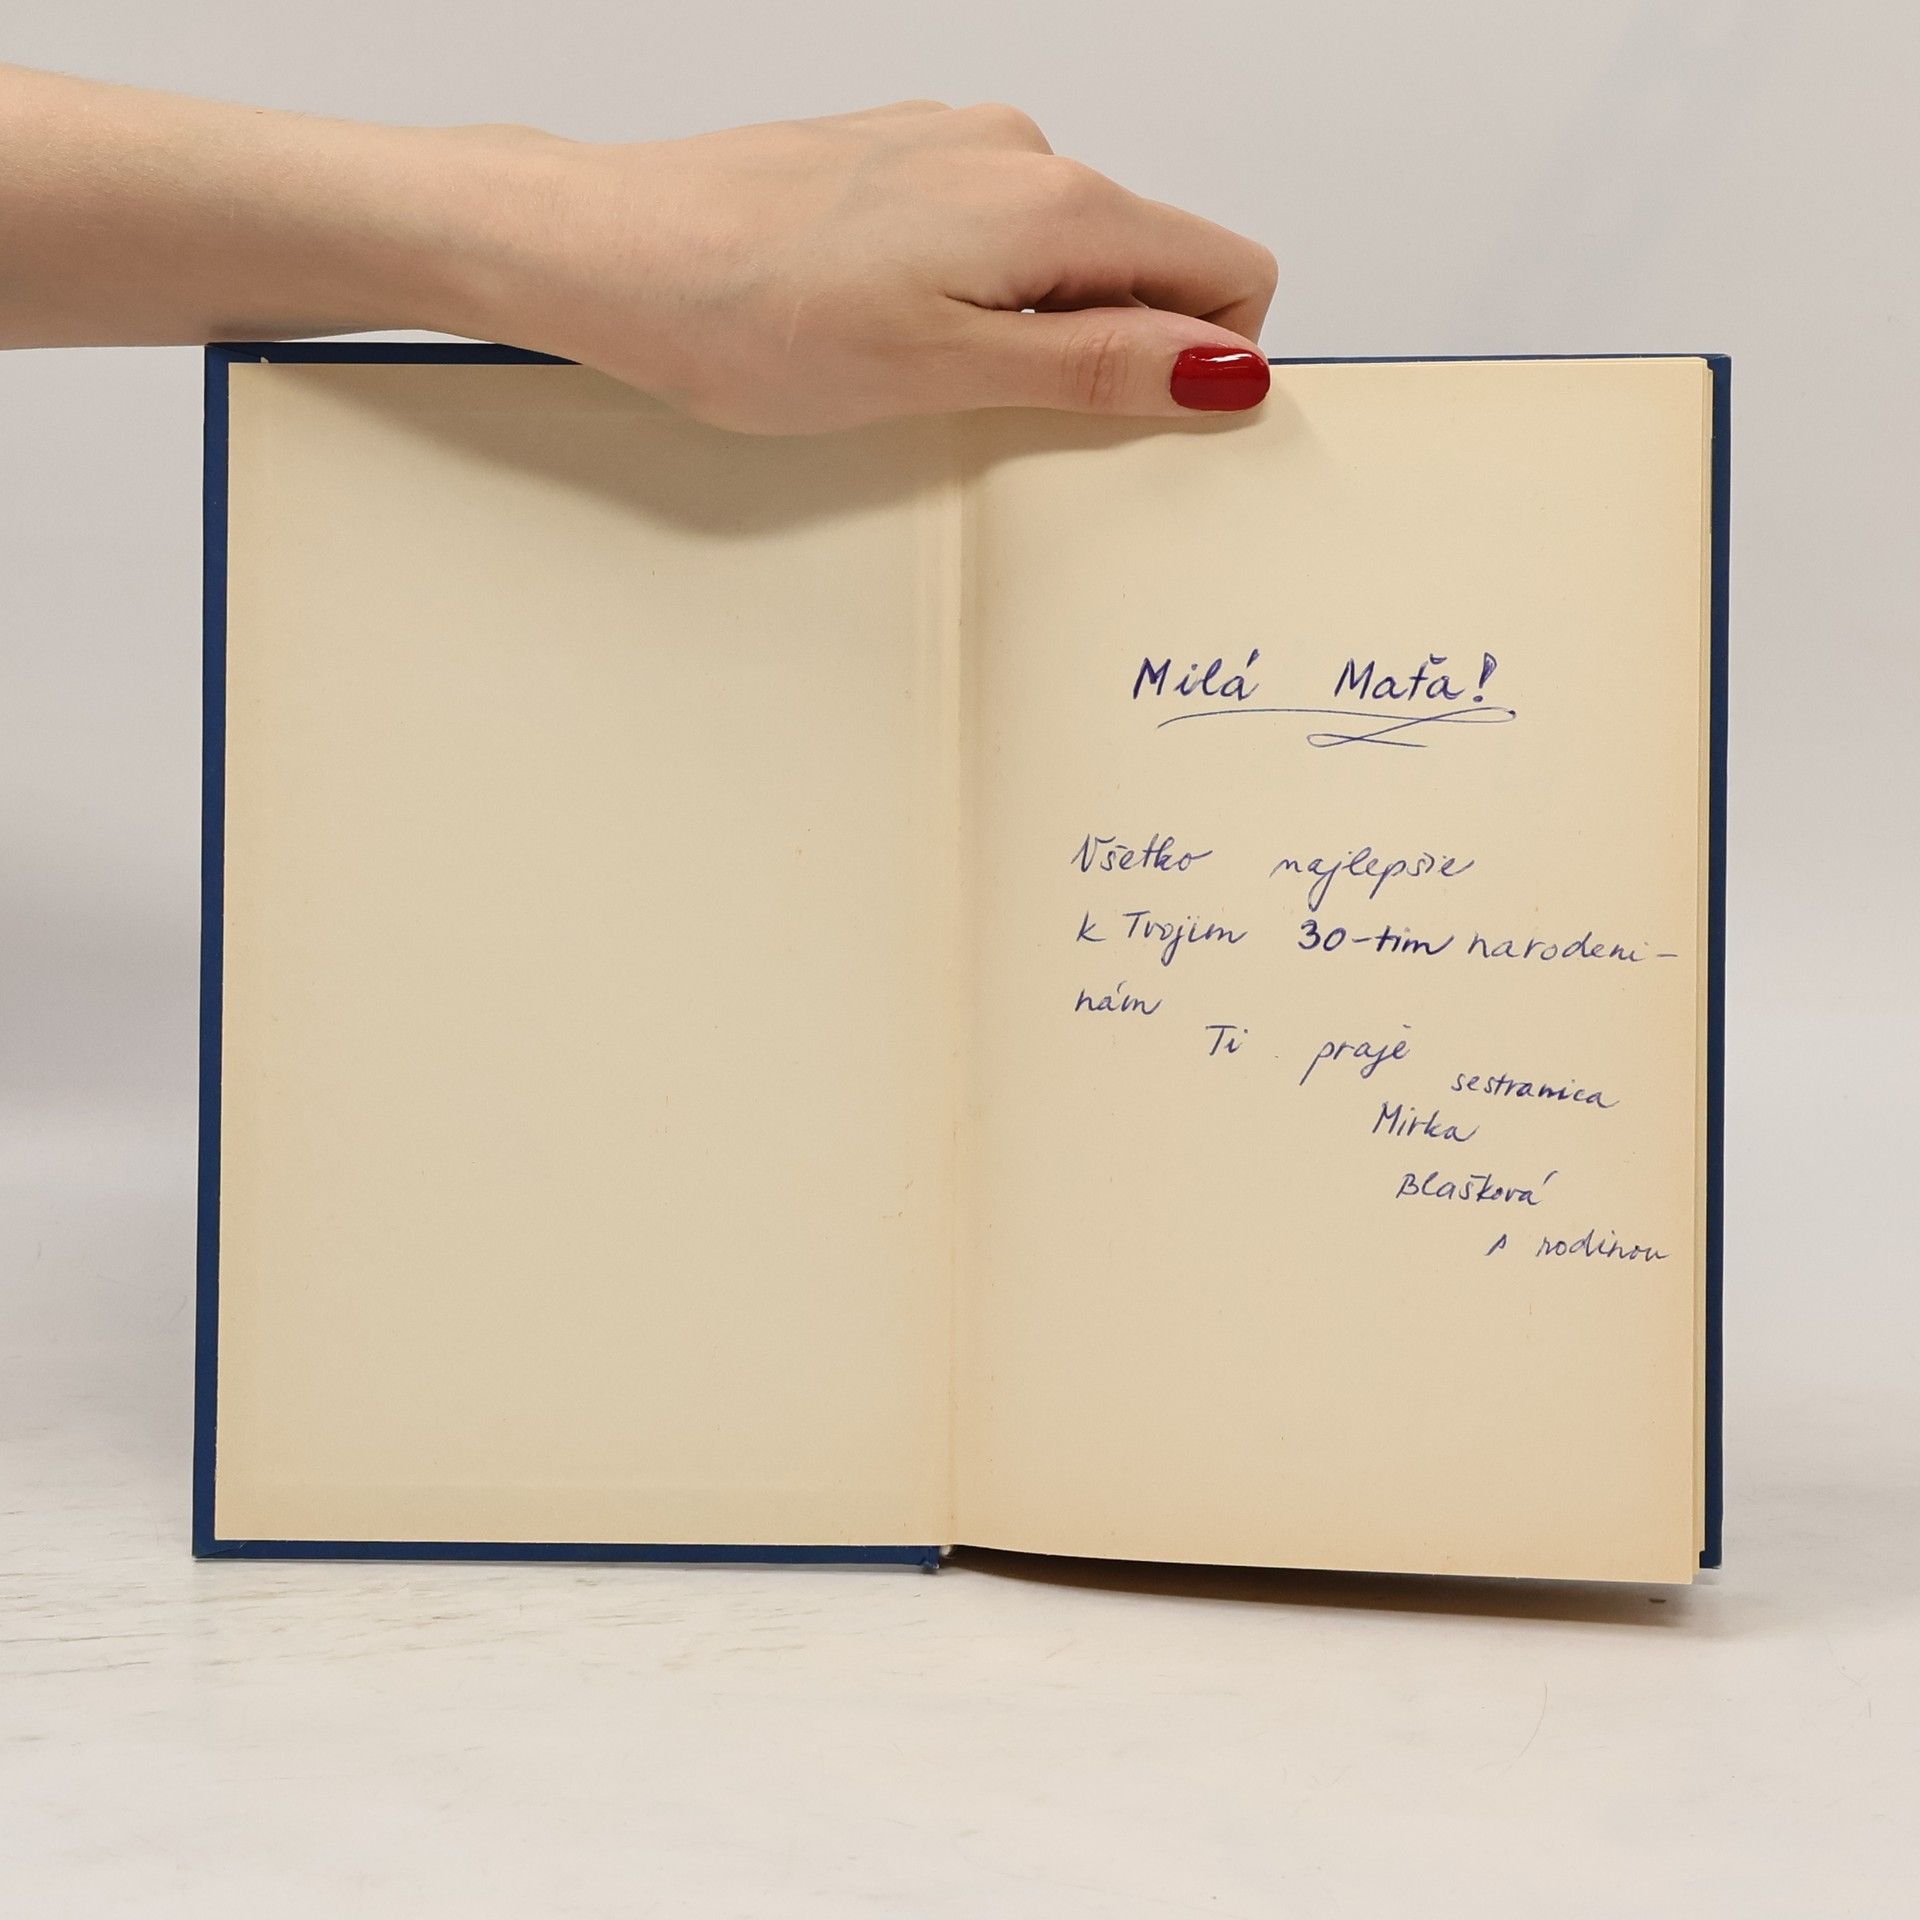 Milá Maťa!
Všetko najlepšie
k Tvojim 30-tim narodeni-
nám
Ti praje
sestranica
Mirka
Blašková
s rodinou